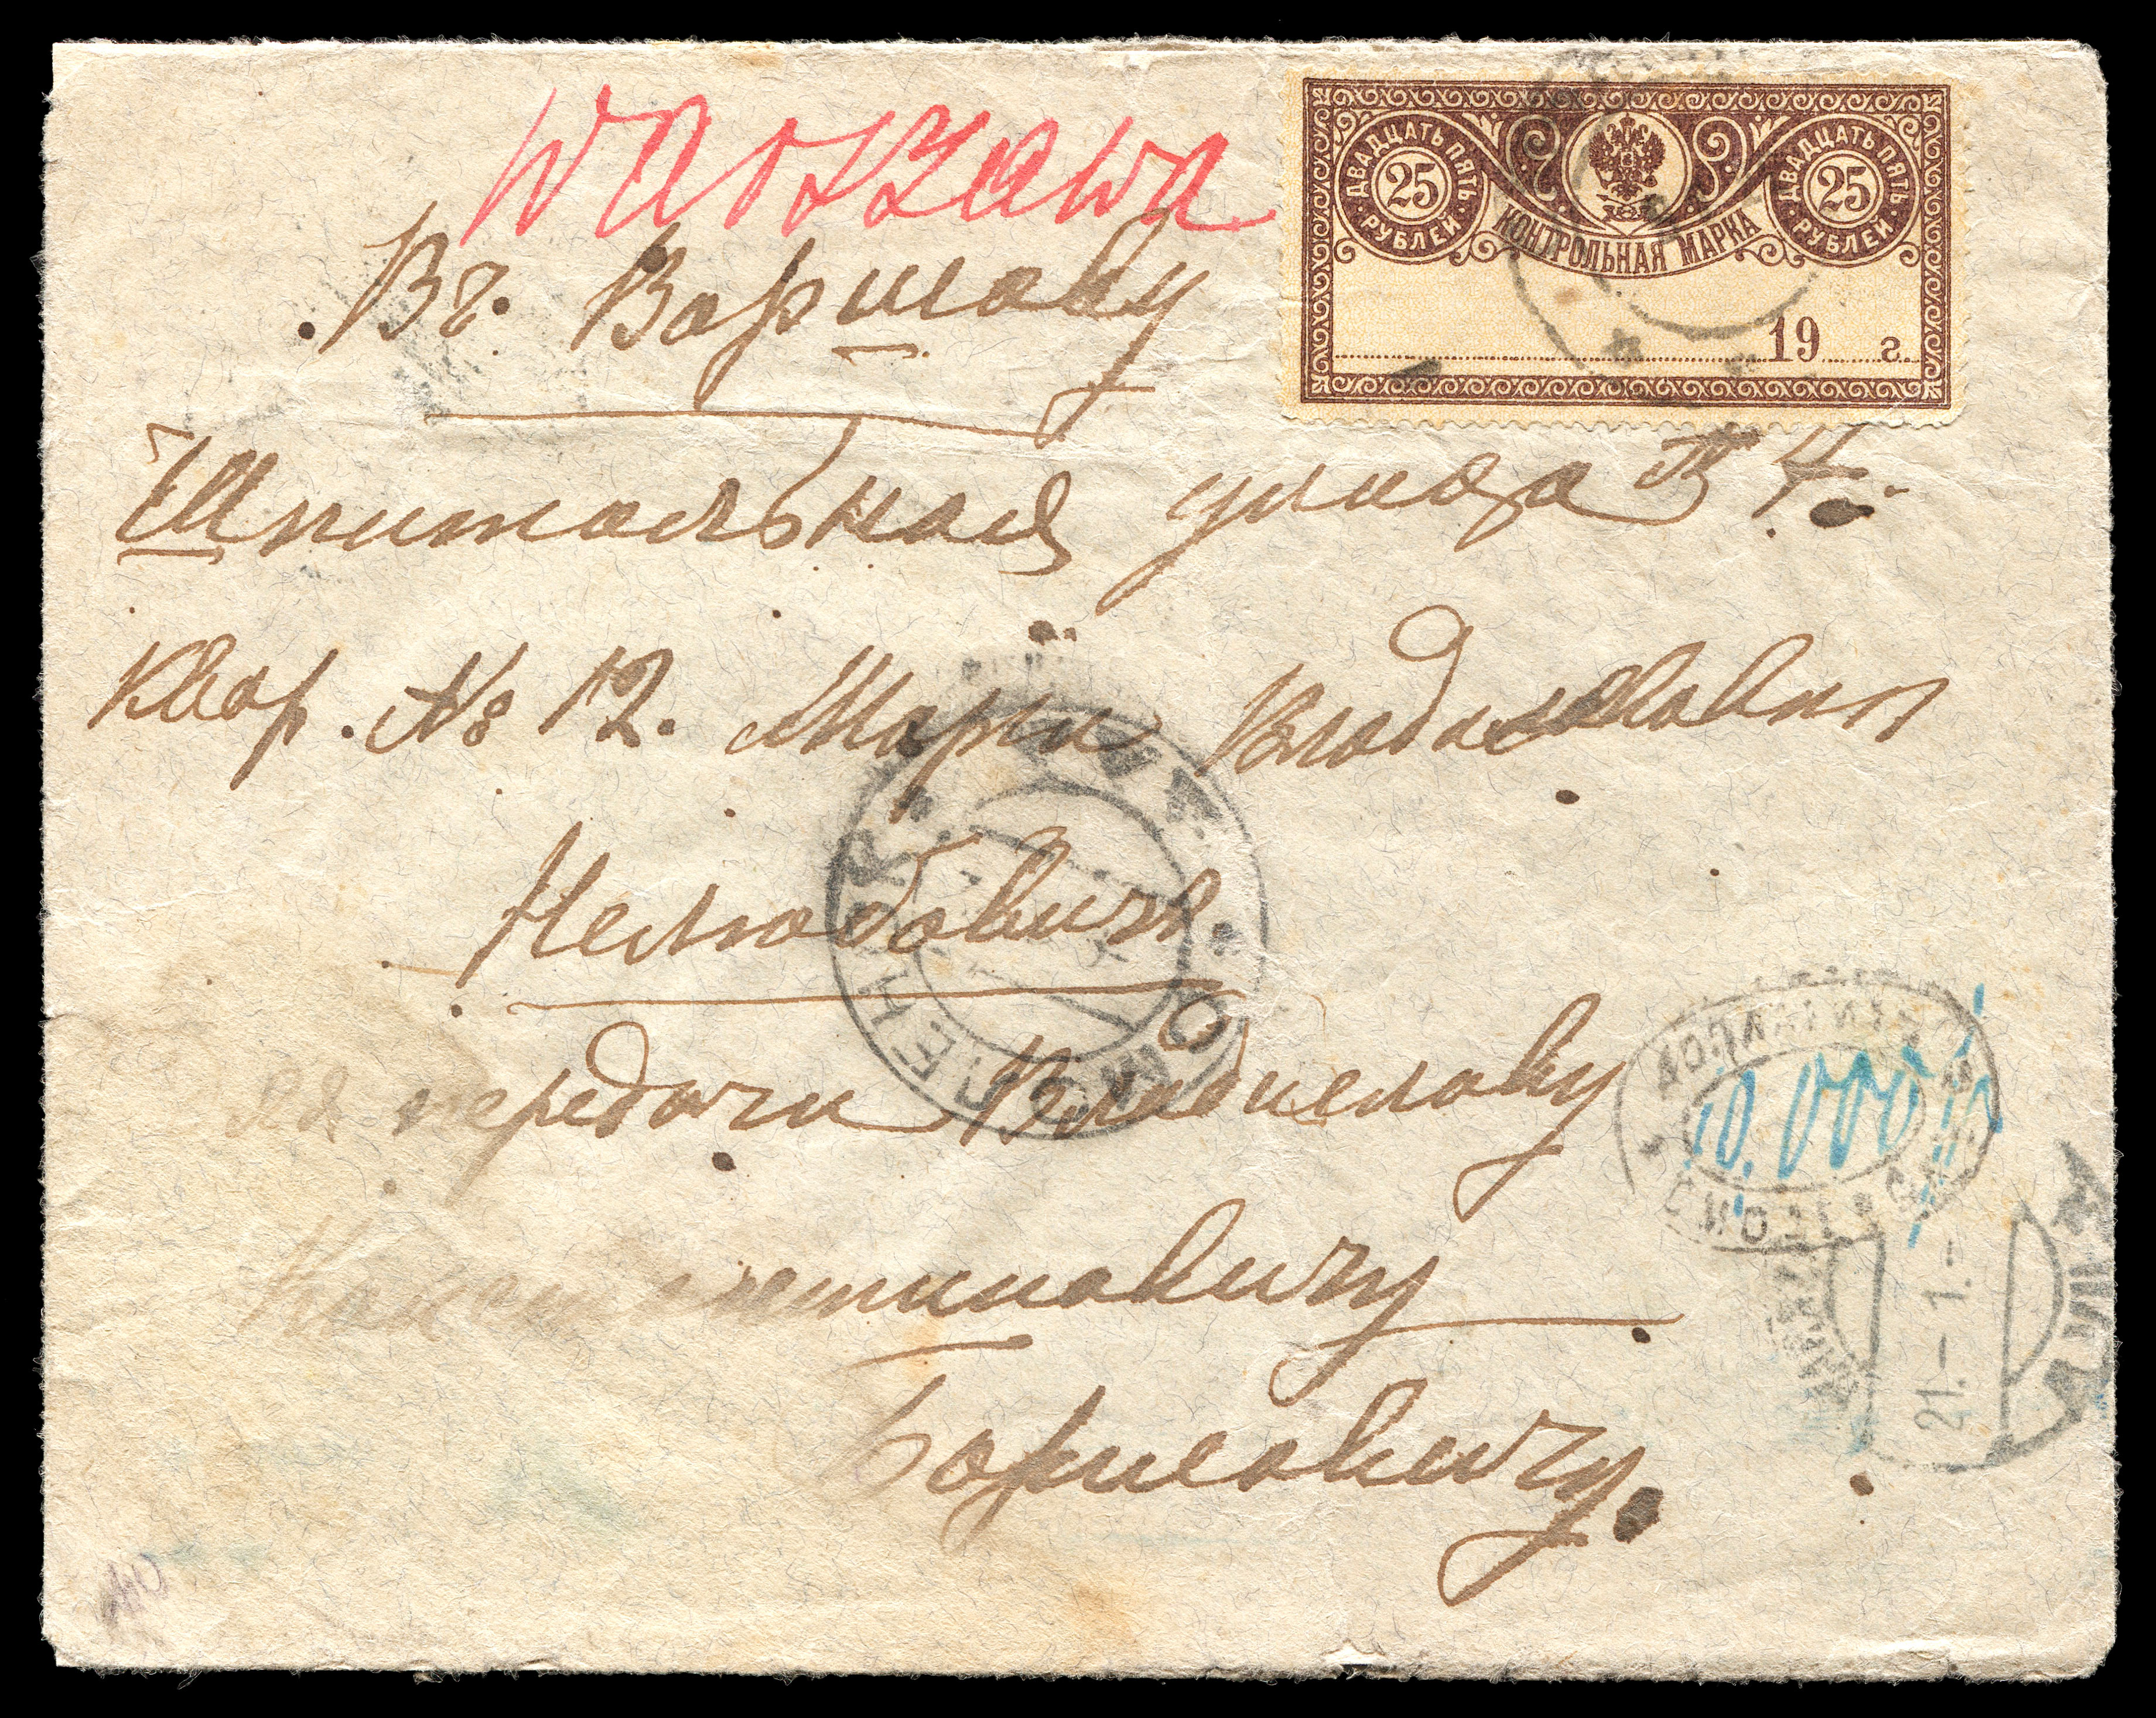 Warszawa
ДВАДЦАТЬ ПЯТЬ РУБЛЕЙ
25
КОНТРОЛЬНАЯ МАРКА
ДВАДЦАТЬ ПЯТЬ РУБЛЕЙ
25
19 г.
Въ г. Варшаву
Шпитальная улица № 4.
Квар. № 12. Маріи
Нелюбовичъ.
для передачи Владиславу
Константиновичу
Борисовичу.
СМОЛЕНСК
ДОПЛАТИТЬ
10.000
СМОЛЕНСК
21.-1.-